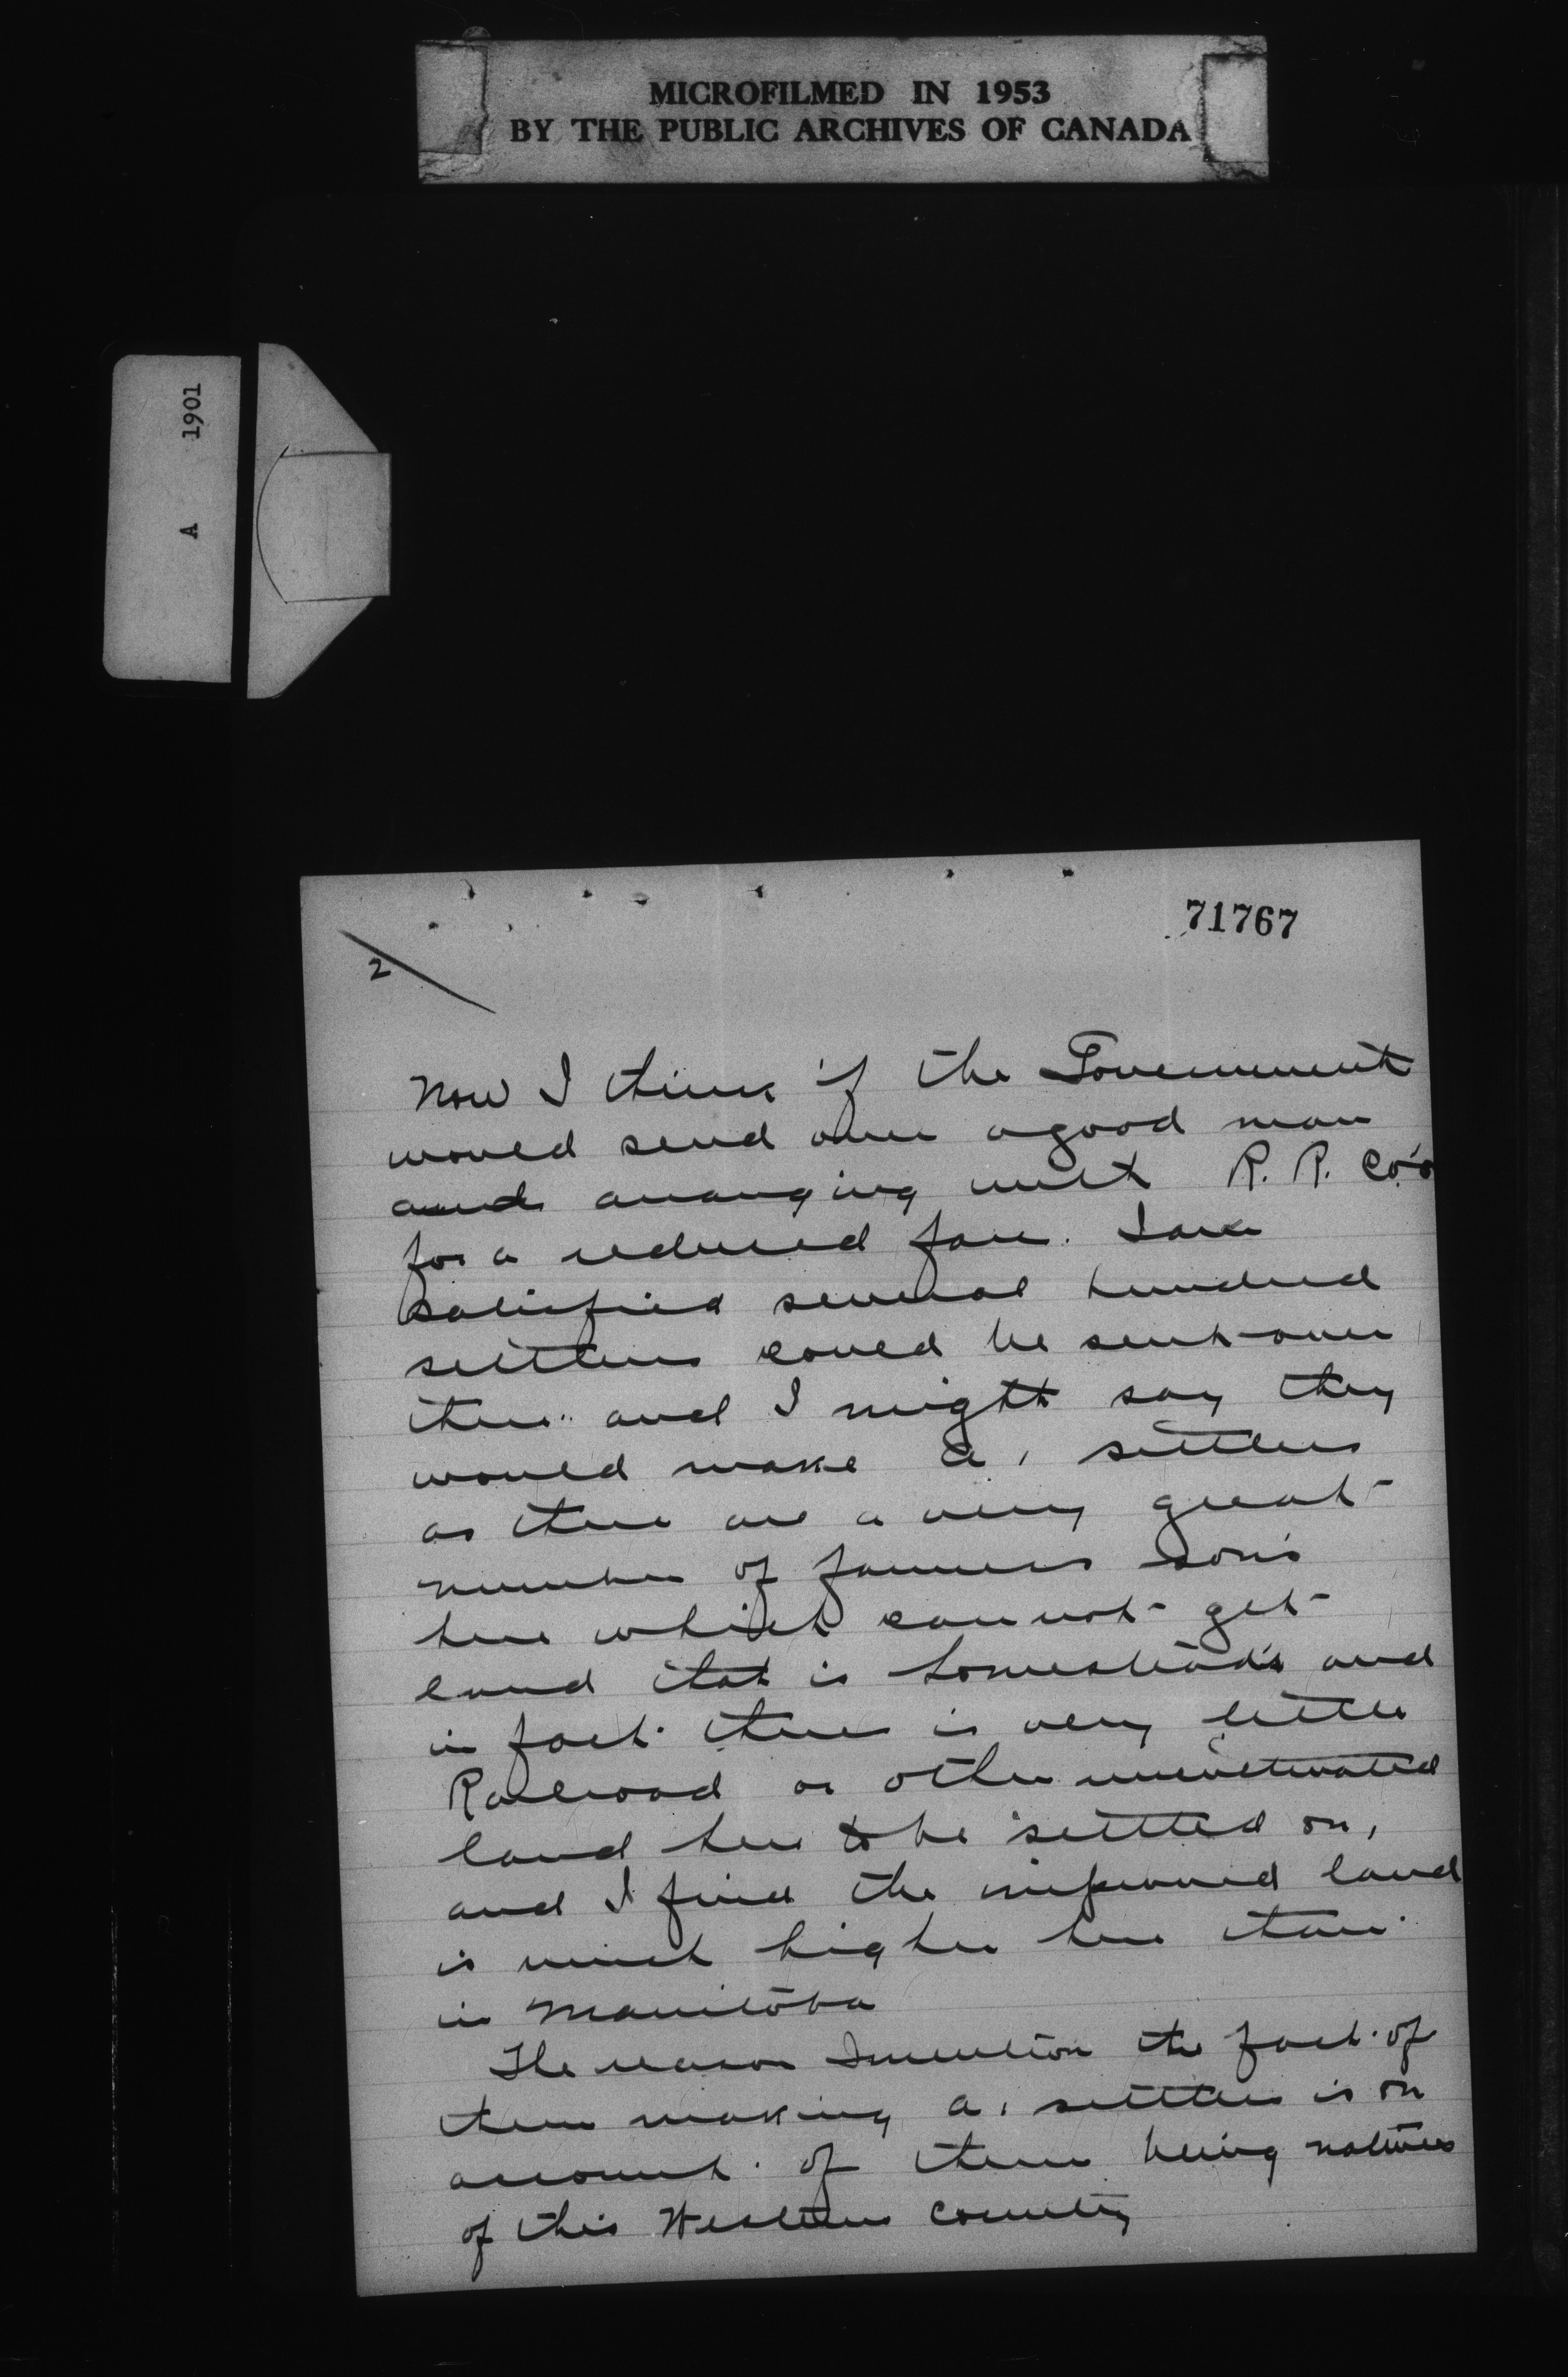 MICROFILMED IN 1953
BY THE PUBLIC ARCHIVES OF CANADA
A 1901
71767
2
Now I think if the Government
would send over a good man
and arranging with R. R. Co's
for a reduced fare. I am
satisfied several hundred
settlers could be sent over
there and I might say they
would make a1 settlers
as there are a very great
number of farmers sons
here which can not get
land that is homesteads and
in fact there is very little
Railroad or other uncultivated
land here to be settled on,
and I find the improved land
is much higher here than
in Manitoba
The reason I mention the fact of
them making a1 settlers is on
account of them being natives
of this Western country